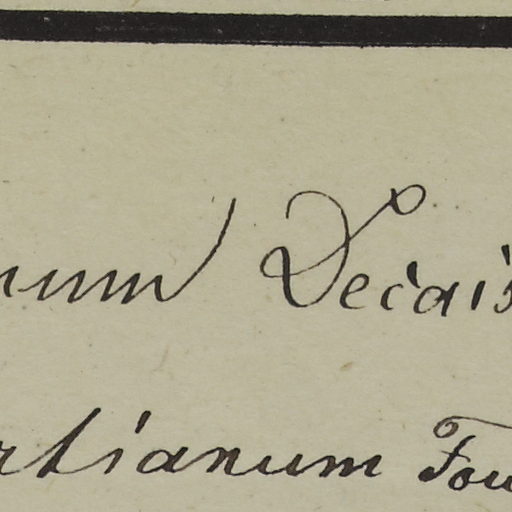 num Decais
rtianum Fou